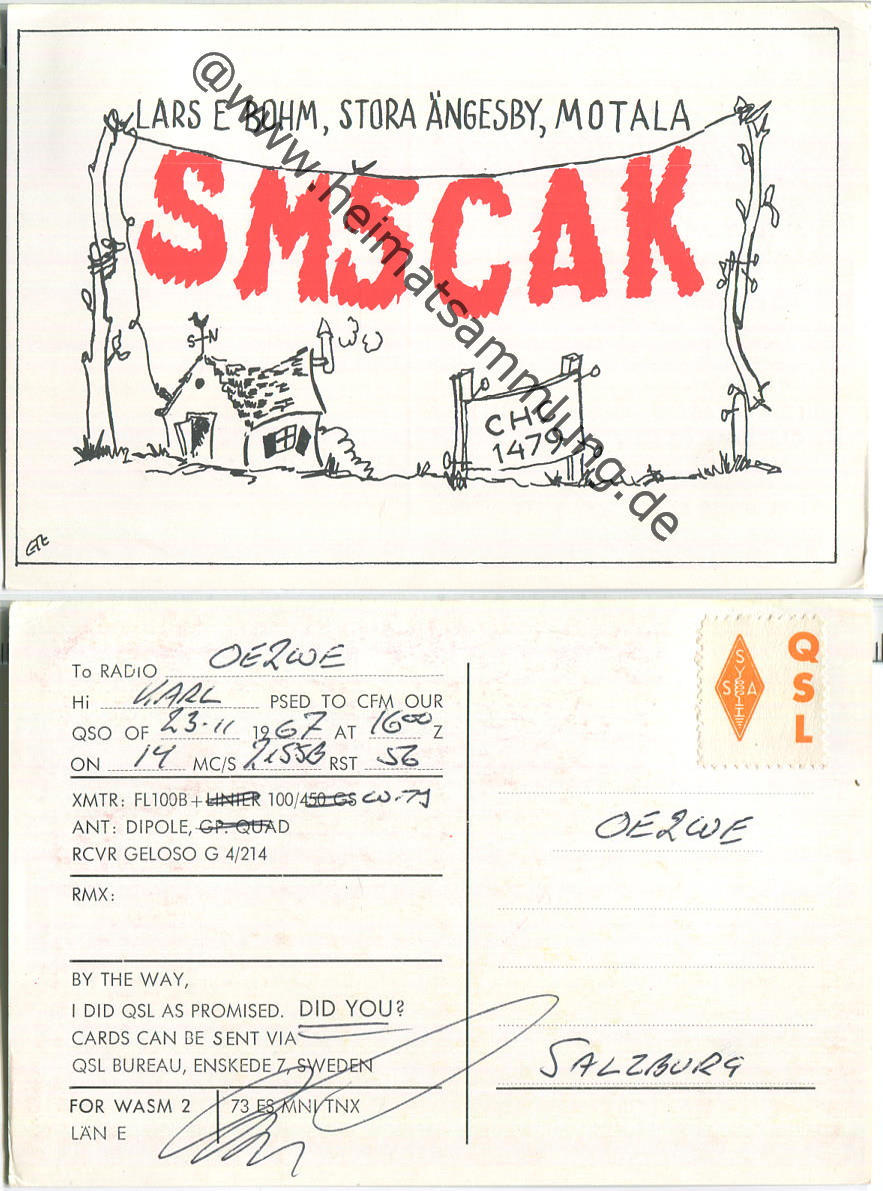 LARS E BOHM, STORA ÄNGESBY, MOTALA
SM5CAK
S N
CHC
1479
@www.heimatsammlung.de
To RADIO OE2WE
Hi KARL PSED TO CFM OUR
QSO OF 23-11 1967 AT 1600 Z
ON 14 MC/S 2xSSB RST 56
XMTR: FL100B+LINIER 100/450 GS
ANT: DIPOLE, GP. QUAD
RCVR GELOSO G 4/214
RMX:
BY THE WAY,
I DID QSL AS PROMISED. DID YOU?
CARDS CAN BE SENT VIA
QSL BUREAU, ENSKEDE 7, SWEDEN
FOR WASM 2
LÄN E
73 ES MNI TNX
QSL
OE2WE
SALZBURG